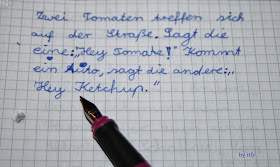 Zwei Tomaten treffen sich
auf der Straße. Sagt die
eine:„Hey Tomate!" Kommt
ein Auto, sagt die andere:„
Hey Ketchup."
by sfy